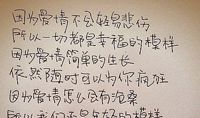 因为爱情不会轻易悲伤
所以一切都是幸福的模样
因为爱情简单的生长
依然随时可以为你疯狂
因为爱情怎么会有沧桑
所以我们还是年轻的模样